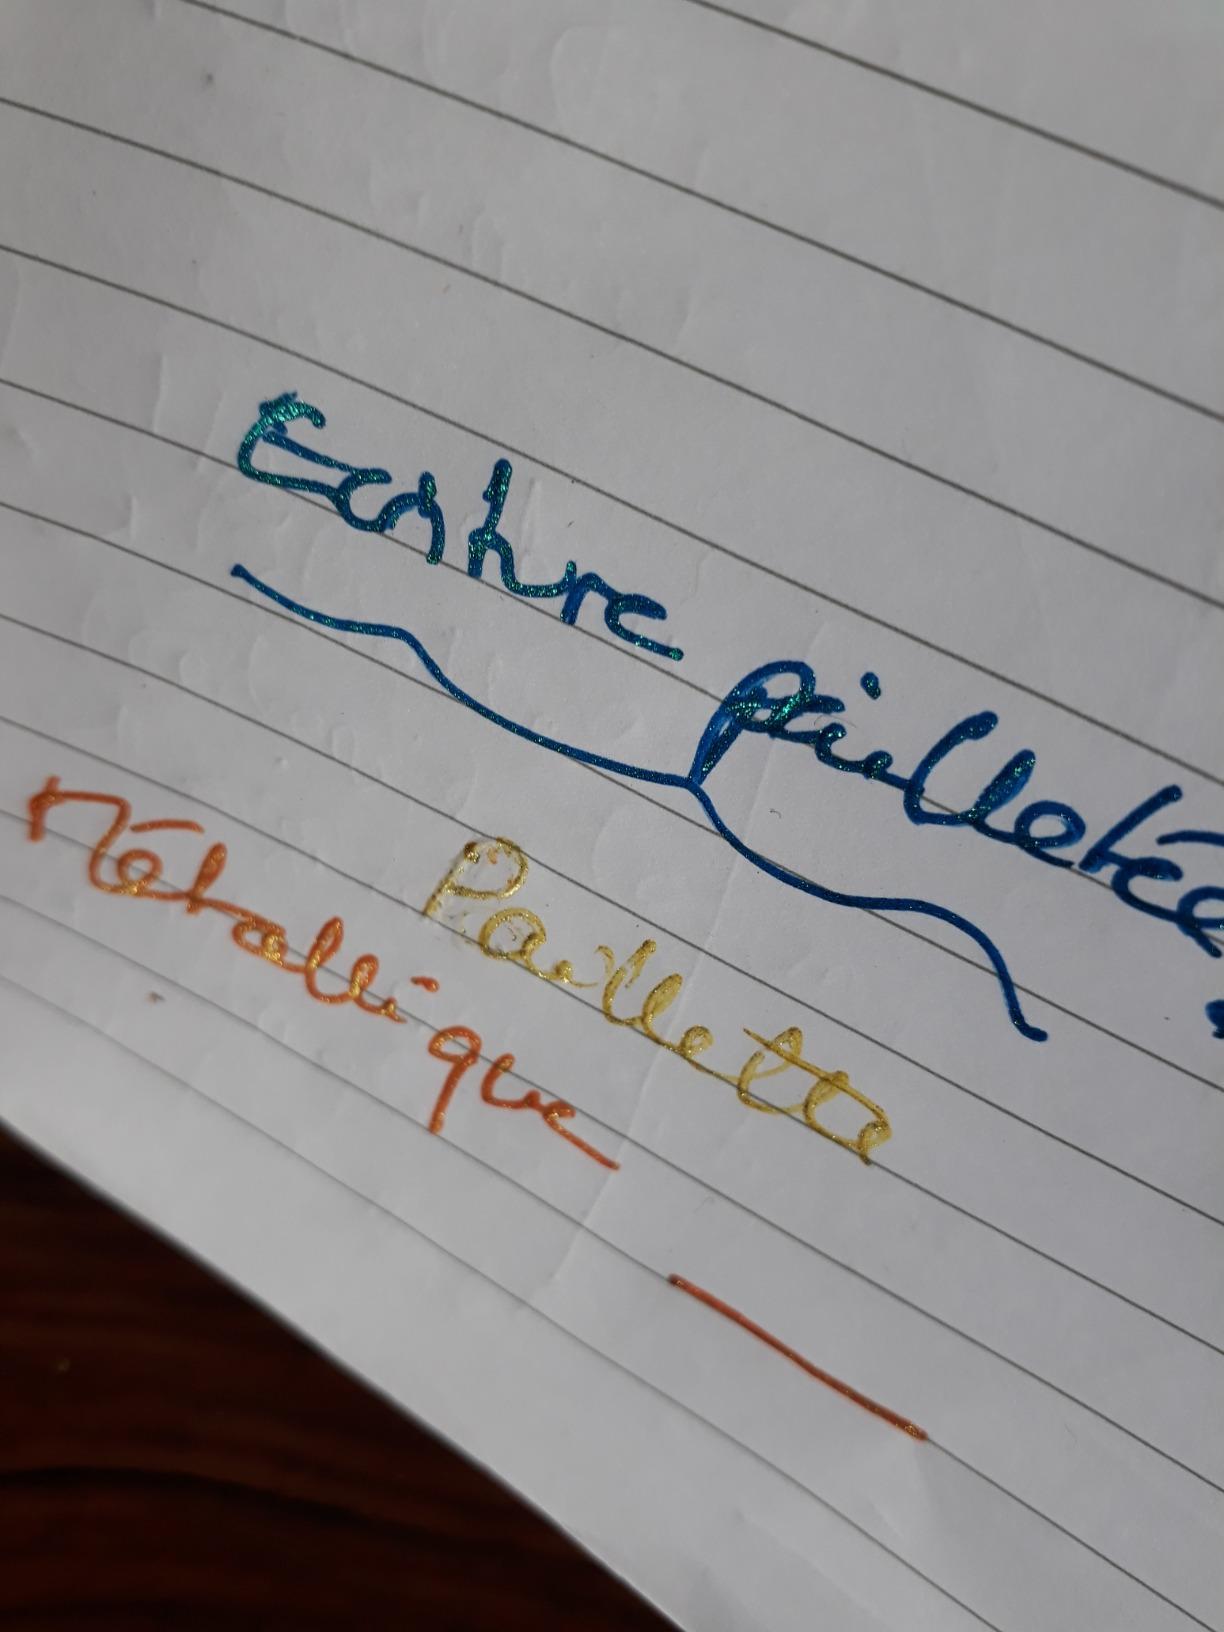 Ecriture pailletée
Paillette
Métallique